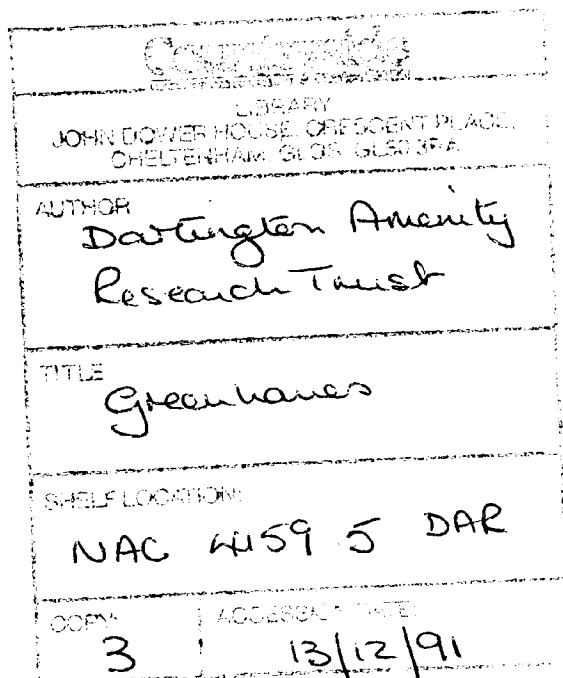 Countryside
LIBRARY
JOHN DOWER HOUSE, CRESCENT PLACE,
CHELTENHAM, GLOS. GL50 3RA
AUTHOR
Dartington Amenity
Research Trust
TITLE
Greenhaves
SHELF LOCATION:
NAC 4159 5 DAR
COPY: ACCESSION DATE:
3 13/12/91